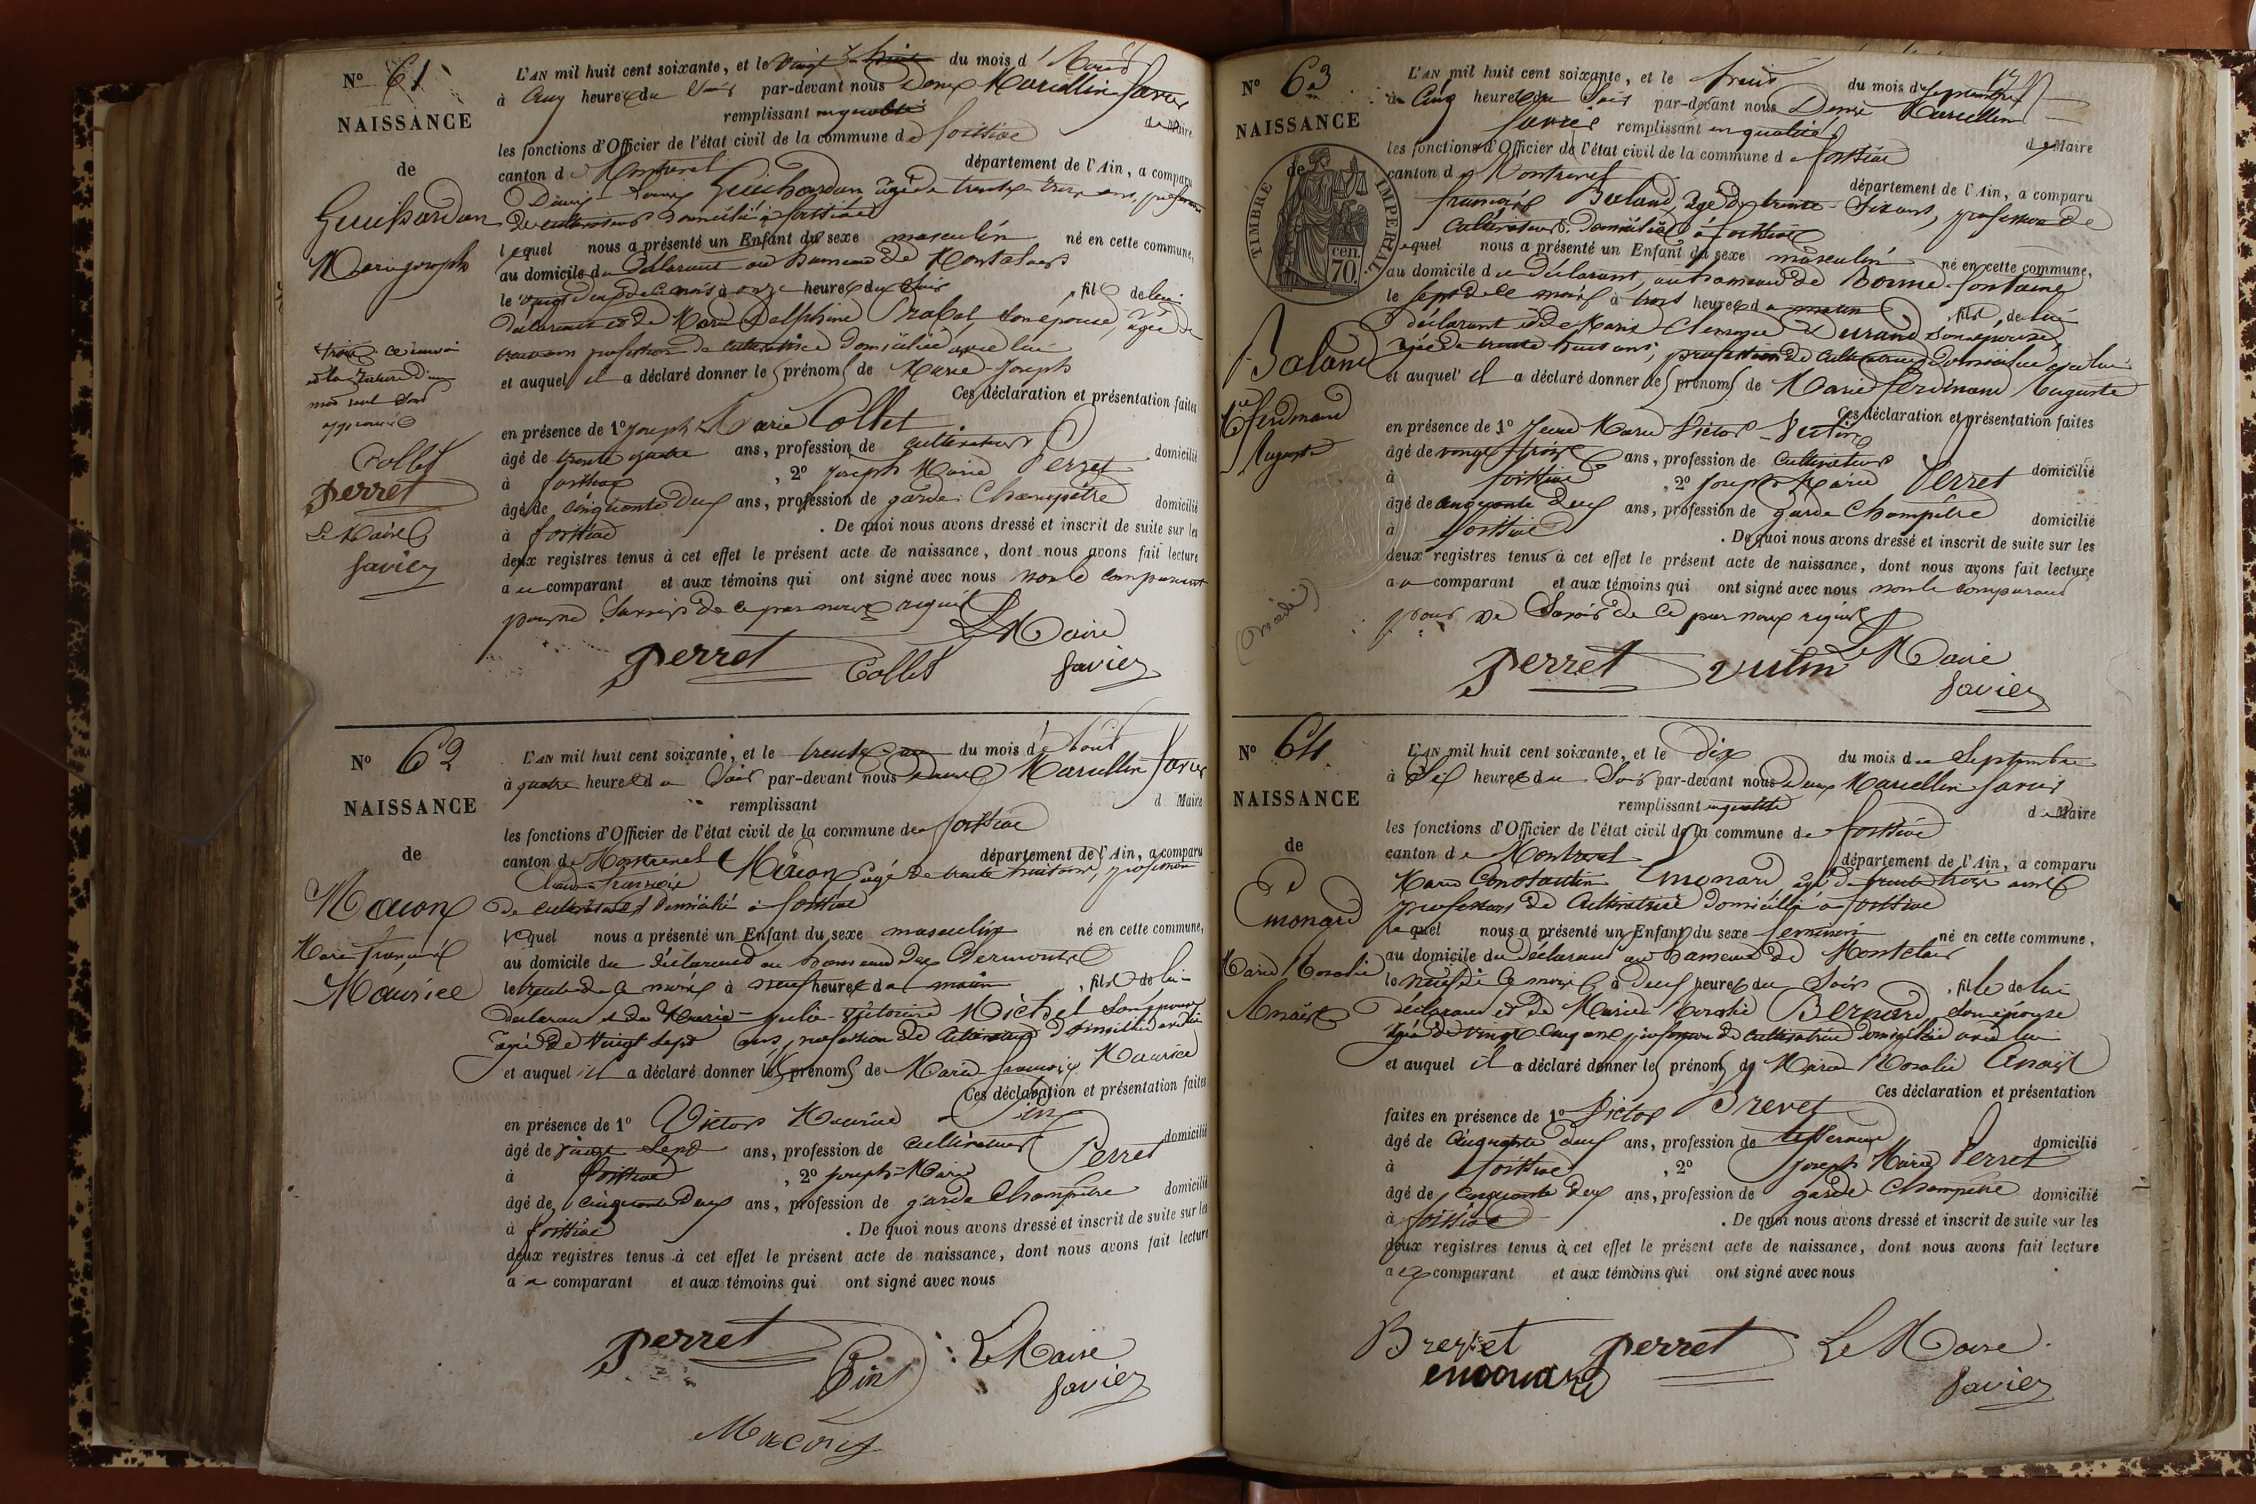 N° 61
NAISSANCE
de
Guichardan
Marie joseph
L'AN mil huit cent soixante, et le vingt du mois d'Aout
à Cinq heures du Soir par-devant nous Denis Marcellin favier
remplissant en qualité de Maire
les fonctions d'Officier de l'état civil de la commune de foissiat
canton de Montrevel département de l'Ain, a comparu
Guichardan âgé de trente trois ans, profession
de cultivateur domicilié à foissiat
lequel nous a présenté un Enfant du sexe masculin né en cette commune,
au domicile du déclarant au hameau de Montclair
le vingt deux de ce mois à onze heures du Soir, fils de lui
déclarant et de Marie Delphine Rabel, son épouse, âgée de
profession de cultivatrice domiciliée avec lui
et auquel il a déclaré donner les prénoms de Marie-Joseph
Ces déclaration et présentation faites
en présence de 1° Joseph Marie Collet
âgé de trente quatre ans, profession de cultivateur domicilié
à foissiat, 2° Joseph Marie Perret
âgé de cinquante deux ans, profession de garde-Champêtre domicilié
à foissiat. De quoi nous avons dressé et inscrit de suite sur les
deux registres tenus à cet effet le présent acte de naissance, dont nous avons fait lecture
au comparant et aux témoins qui ont signé avec nous non le comparant
pour ne Savoir de ce par nous requis
Le Maire
perret Collet favier
mot nul Sont
approuvés
Collet
perret
Le Maire
favier
N° 62
NAISSANCE
de
Macon
Marie françois
Maurice
L'AN mil huit cent soixante, et le trente-un du mois d'Aout
à quatre heures du Soir par-devant nous Denis Marcellin favier
remplissant d Maire
les fonctions d'Officier de l'état civil de la commune de foissiat
canton de Montrevel département de l'Ain, a comparu
Claude françois Macon âgé de trente huit ans, profession
de cultivateur domicilié à foissiat
lequel nous a présenté un Enfant du sexe masculin né en cette commune,
au domicile du déclarant au hameau des
le trente de ce mois à neuf heures du matin, fils de lui
déclarant et de Marie-Julie-Victoire Michel Son épouse
âgée de vingt Sept ans, profession de cultivatrice domiciliée avec lui
et auquel il a déclaré donner les prénoms de Marie françois Maurice
Ces déclaration et présentation faites
en présence de 1° Victor Maurice Pin
âgé de vingt Sept ans, profession de cultivateur domicilié
à foissiat, 2° Joseph-Marie Perret
âgé de cinquante deux ans, profession de garde Champêtre domicilié
à foissiat. De quoi nous avons dressé et inscrit de suite sur les
deux registres tenus à cet effet le présent acte de naissance, dont nous avons fait lecture
au comparant et aux témoins qui ont signé avec nous
perret Pin Le Maire
favier
Macon
N° 63
NAISSANCE
de
TIMBRE IMPERIAL
70 cen.
Baland
Mie ferdinand
Auguste
L'AN mil huit cent soixante, et le huit du mois de Septembre
à Cinq heures du Soir par-devant nous Denis Marcellin
favier remplissant en qualité de Maire
les fonctions d'Officier de l'état civil de la commune de foissiat
canton de Montrevel département de l'Ain, a comparu
françois Baland, âgé de trente-Six ans, profession de
Cultivateur domicilié à foissiat
lequel nous a présenté un Enfant du sexe masculin né en cette commune,
au domicile du déclarant, au hameau de Bonne-fontaine
le Sept de ce mois à trois heures du matin, fils de lui
déclarant et de Marie Durand Son épouse
âgée de trente huit ans, profession de cultivatrice domiciliée avec lui
et auquel il a déclaré donner les prénoms de Marie ferdinand Auguste
Ces déclaration et présentation faites
en présence de 1° Jean Marie Victor Vutin
âgé de vingt trois ans, profession de cultivateur domicilié
à foissiat, 2° Joseph Marie Perret
âgé de cinquante deux ans, profession de garde Champêtre domicilié
à foissiat. De quoi nous avons dressé et inscrit de suite sur les
deux registres tenus à cet effet le présent acte de naissance, dont nous avons fait lecture
au comparant et aux témoins qui ont signé avec nous non le comparant
pour ne Savoir de ce par nous requis
perret vutin Le Maire
favier
N° 64
NAISSANCE
de
Emonard
Marie Rosalie
Anaïs
L'AN mil huit cent soixante, et le dix du mois de Septembre
à Six heures du Soir par-devant nous Denis Marcellin favier
remplissant en qualité de Maire
les fonctions d'Officier de l'état civil de la commune de foissiat
canton de Montrevel département de l'Ain, a comparu
Marie Constantin Emonard âgé de trente trois ans
profession de Cultivateur domicilié à foissiat
lequel nous a présenté un Enfant du sexe feminin né en cette commune,
au domicile du déclarant au hameau de Montclair
le neuf de ce mois à Deux heures du Soir, fille de lui
déclarant et de Marie Rosalie Bernard, Son épouse
âgée de vingt Cinq ans profession de cultivatrice domiciliée avec lui
et auquel il a déclaré donner les prénoms de Marie Rosalie Anaïs
Ces déclaration et présentation
faites en présence de 1° Victor Brevet
âgé de cinquante deux ans, profession de domicilié
à foissiat, 2° Joseph Marie Perret
âgé de cinquante deux ans, profession de garde-Champêtre domicilié
à foissiat. De quoi nous avons dressé et inscrit de suite sur les
deux registres tenus à cet effet le présent acte de naissance, dont nous avons fait lecture
aux comparant et aux témoins qui ont signé avec nous
Brevet perret Le Maire
emonard favier